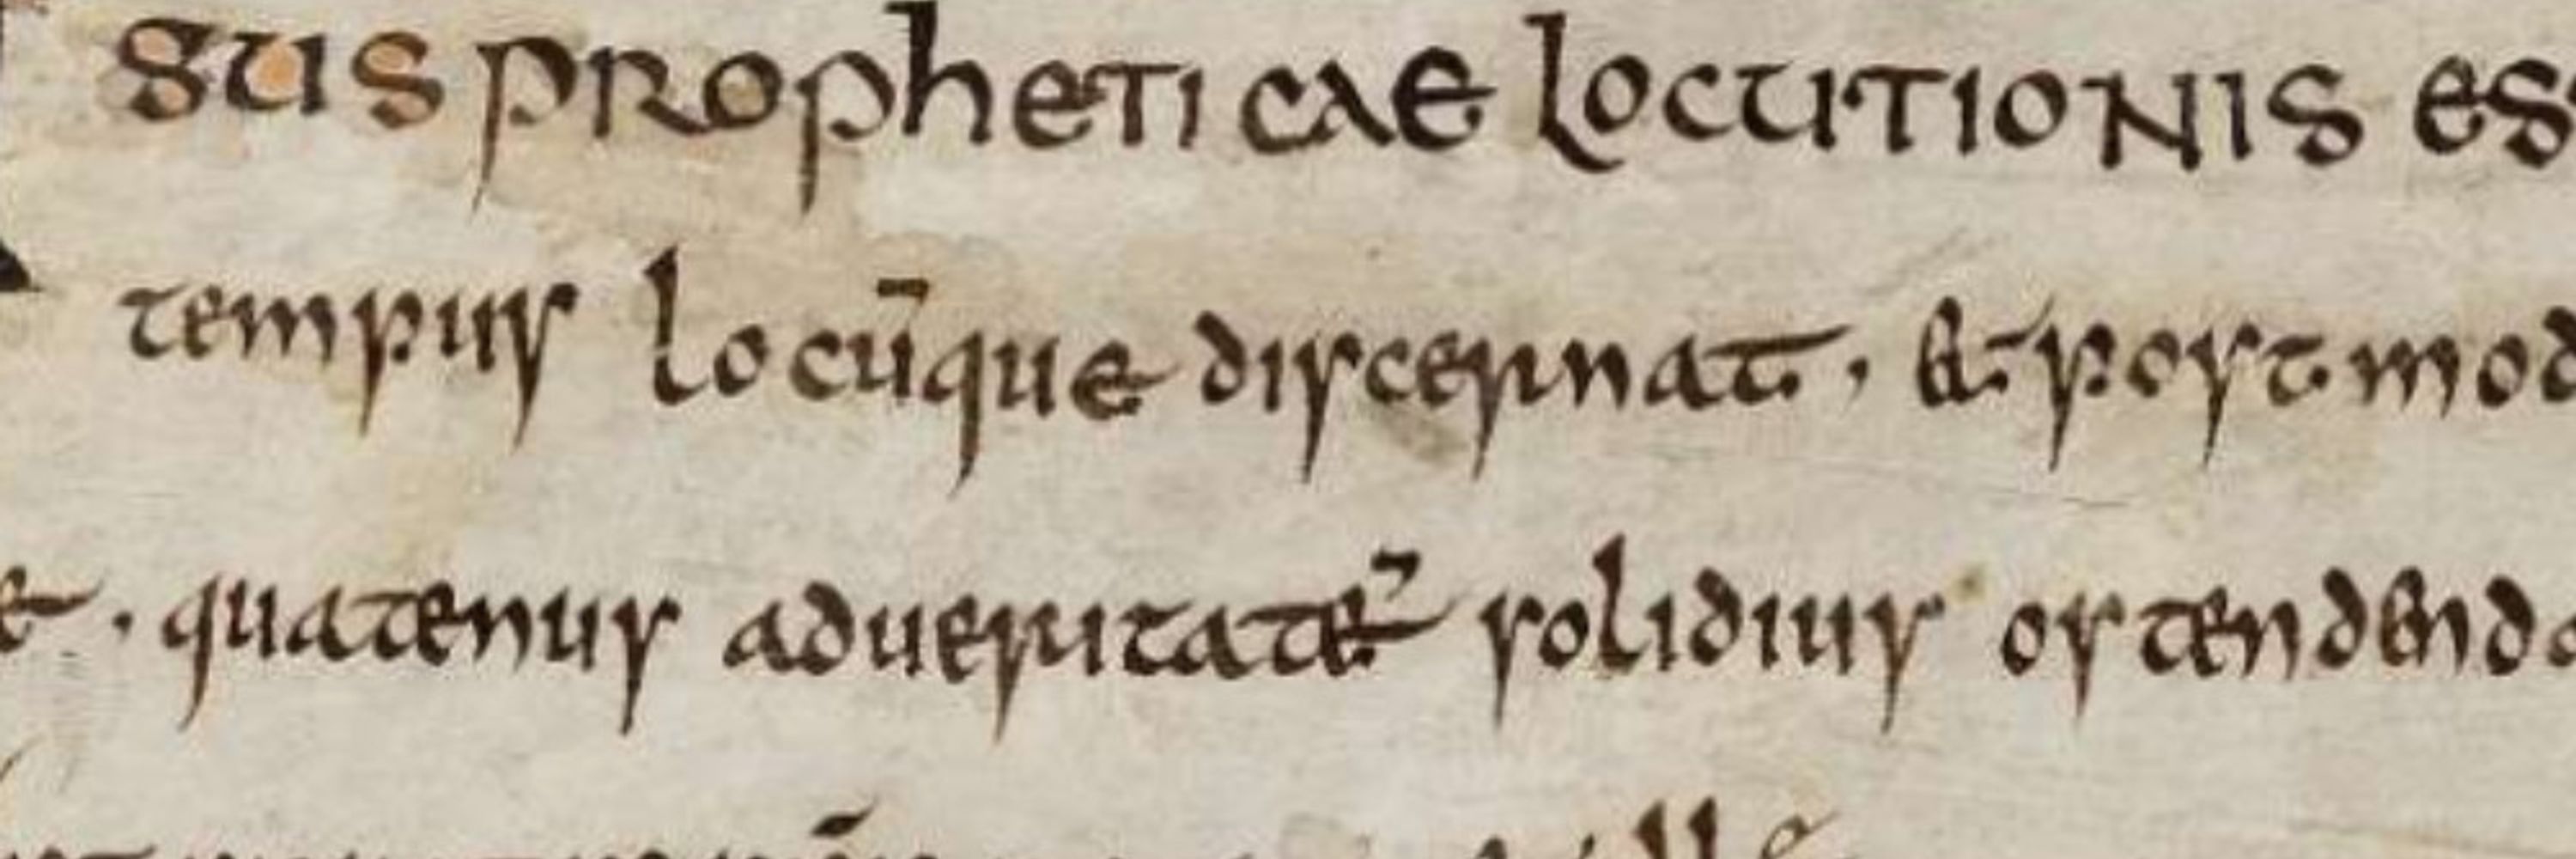 sus propheticae locutionis es
tempus locūque discernat, et postmod
e. quatenus adueritatē solidius ostendend